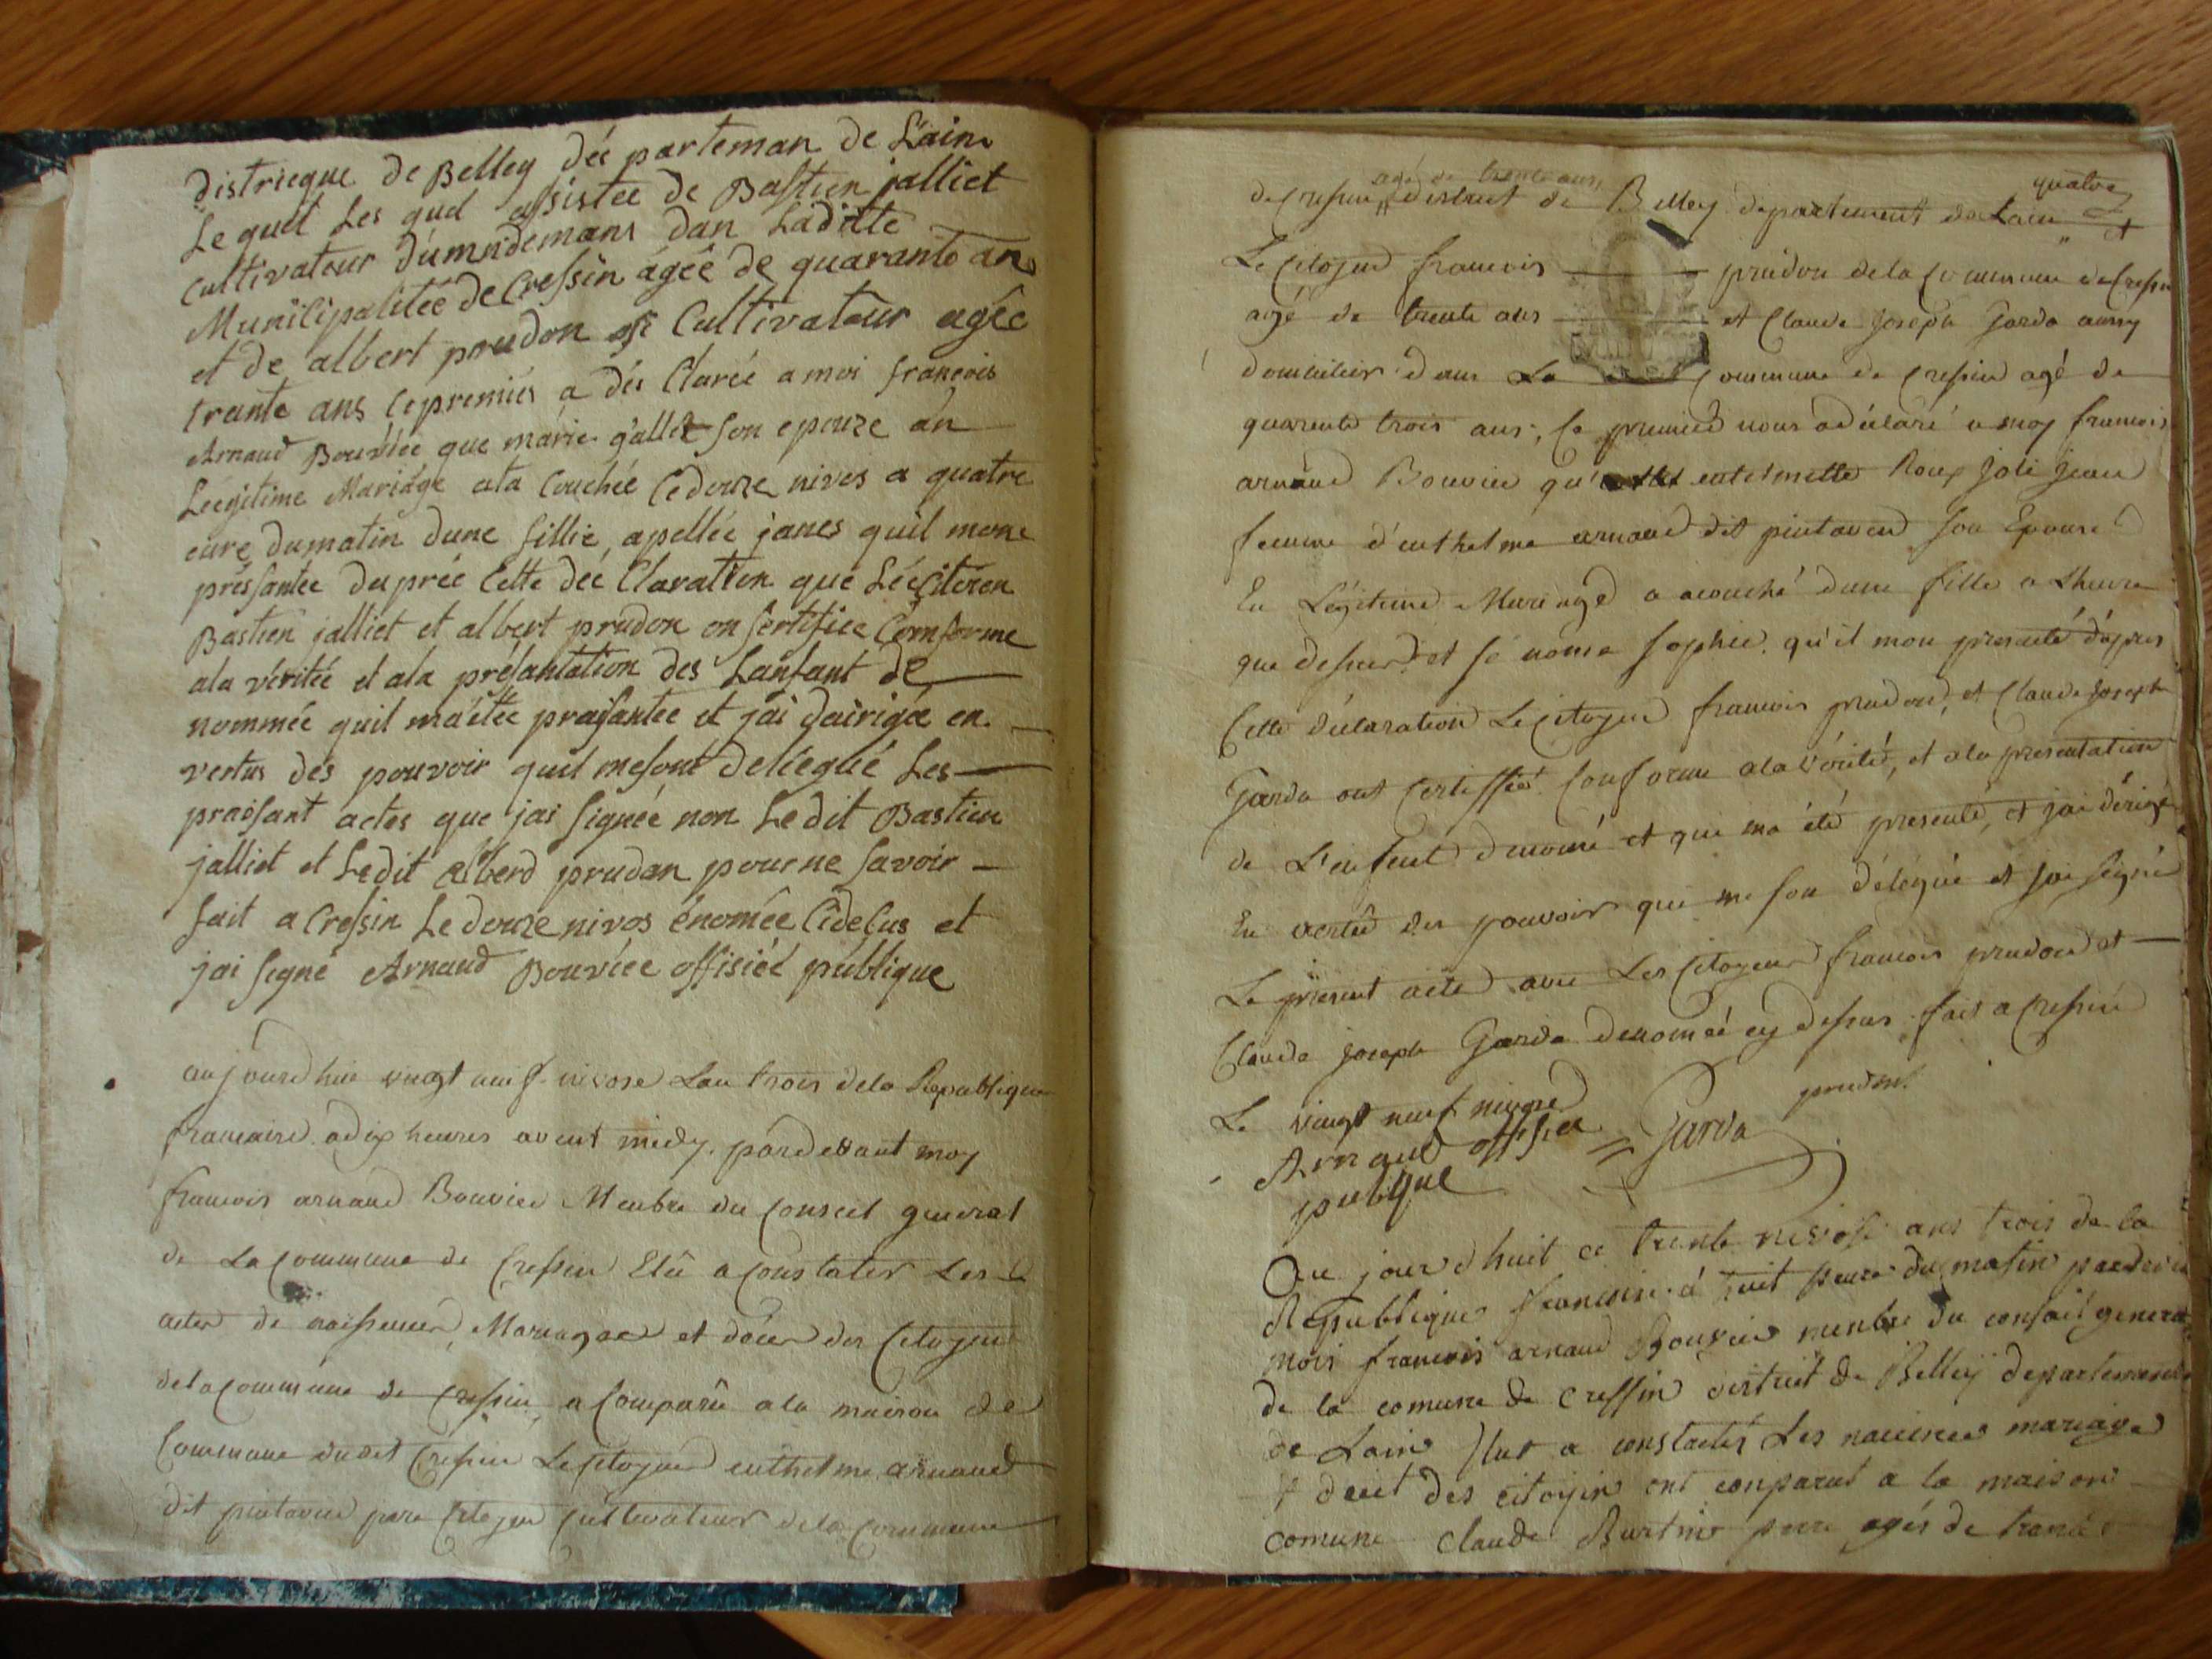 Districque de Belley déé parteman de Lain
Le quel Les quel assistée de Bastien jalliet
Cultivateur dumndemans dan Laditte
Municipalitéé de Cressin ágéé de quarante an
et de albert prudon Cultivateur agée
trante ans Le premiér a dés Claréé a moi françois
Arnaud Bouviée que márie gallet son epouze an
Léegitime Mariáge ata Couchéé Ledouze nivos a quatre
eure dumatin dune fillie, apelléé janes quil mone
préssantée dupréé Cette déé Claration que Léé Citoien
Bastien jalliet et albert prudon on sertifiee Comforme
ala véritéé et ala présantation des Lanfant de
nomméé quil ma étée prasantée et jai dairigæ en
vertus dés pouvoir quil mesont deléégué Les
praisant actes que jai signéé non Ledit Bastien
jalliet et Ledit alberd prudan pourne savoir
fait a Cressin Ledouze nivos énoméé Cidesus et
jai segné Arnaud Bouviée offisiéé publique
aujourdhui vingt neuf nivose Lan trois dela Republique
francaise adix heures avent midy. pardevant moy
francois arnaud Bouvier Membre du Conseil general
de La Commune de Cressin Elû a Constater Les
actes de naissence, Mariages et décés des Citoyens
dela Commune de Cressin, a Comparû ala maison de
Commune dudit Cressin Le Citoyen enthelme arnaud
dit pintaven pere Citoyen Cultivateur dela Commune
agé de trente ans quatre
de Cressin, district de Belley departement de Lain et
Le Citoyen francois prudon dela Commune de Cressin
agé de trente ans et Claude Joseph Garda aussy
domicilier dans La Commune de Cressin agé de
quarente trois ans, Le premier nous adéclaré a moy francois
arnaud Bouvier qu' entelmette Roux Joli Jean
femme d'enthelme arnaud dit pintaven son Epouse
En Légitime Mariage a acouché dune fille a Lheure
que dessus et sé nome sophie. qu'il mon presenté d'apres
Cette déclaration Le Citoyen francois prudon, et Claude Joseph
Garda ont Certiffié Conforme ala vérité, et ala presentation
de L'enfent denomé et qui ma été presenté, et jai dérigé
En vertû des pouvoir que me son délégué et jai signé
Le present acte avec Les Citoyen francois prudon et
Claude Joseph Garda denomée cy dessus. fait a Cressin
Le vingt neuf nivose
prudon
Garda
Arnaud offisiee
publique
Au jour d huit ce trente nivose ans trois de la
Republique francoise á huit heure du matin pardevan
mois francois arnaud Bouvier menbre du consail general
de la comune de Cressin distrit de Belley departement
de Lain Elut a constater Les naicence mariage
et decet des citoyin ont conparut a la maison
comune Claude Burtin pere agés de trante